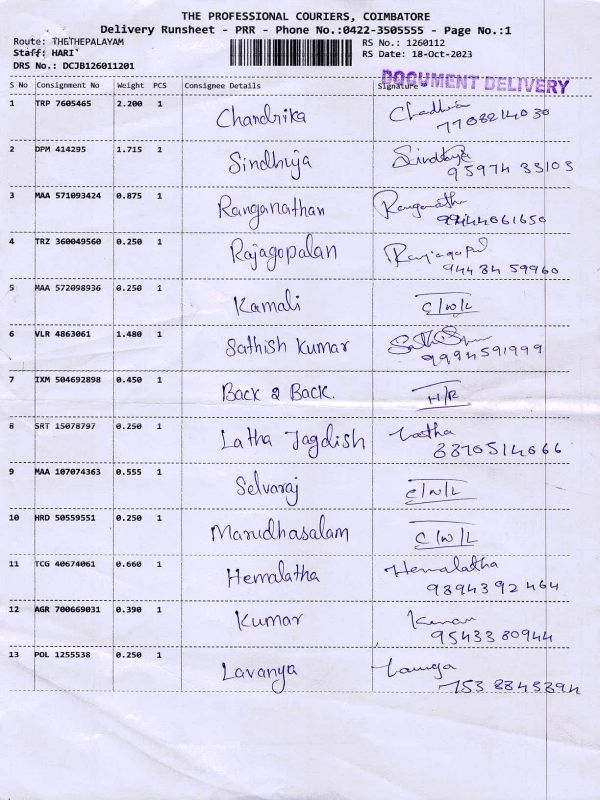 THE PROFESSIONAL COURIERS, COIMBATORE
Delivery Runsheet - PRR - Phone No.:0422-3505555 - Page No.:1
Route: THETHEPALAYAM
Staff: HARI
DRS No.: DCJB126011201
RS No.: 1260112
RS Date: 18-Oct-2023
DOCUMENT DELIVERY
S No Consignment No Weight PCS Consignee Details Signature
1 TRP 7605465 2.200 1 Chandrika
7708214030
2 DPM 414295 1.715 1 Sindhuja Sindhuja
95974 33103
3 MAA 571093424 0.875 1 Ranganathan Ranganatha
99444061650
4 TRZ 360049560 0.250 1 Rajagopalan Rajagopal
94434 59960
5 MAA 572098936 0.250 1 Kamali C/N/L
6 VLR 4863061 1.480 1 Sathish Kumar
9994591999
7 IXM 504692898 0.450 1 Back 2 Back. H/R
8 SRT 15078797 0.250 1 Latha Jagdish Latha
8870514666
9 MAA 107074363 0.555 1 Selvaraj C/N/L
10 HRD 50559551 0.250 1 Marudhasalam C/N/L
11 TCG 40674061 0.660 1 Hemalatha Hemalatha
9894392464
12 AGR 700669031 0.390 1 Kumar Kumar
9543380944
13 POL 1255538 0.250 1 Lavanya